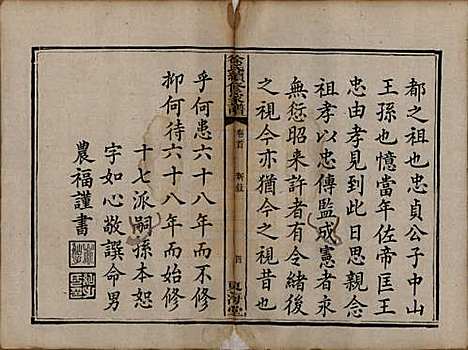 都之祖也忠貞公子中山
王孫也憶當年佐帝匡王
忠由孝見到此日思親念
祖孝以忠傳監成憲者求
無愆昭來許者有令緒後
之視今亦猶今之視昔也
徐氏續修支譜
卷首
新敘
四
東海堂
乎何患六十八年而不修
抑何待六十八年而始修
十七派嗣孫本恕
字如心敬譔命男
農福謹書